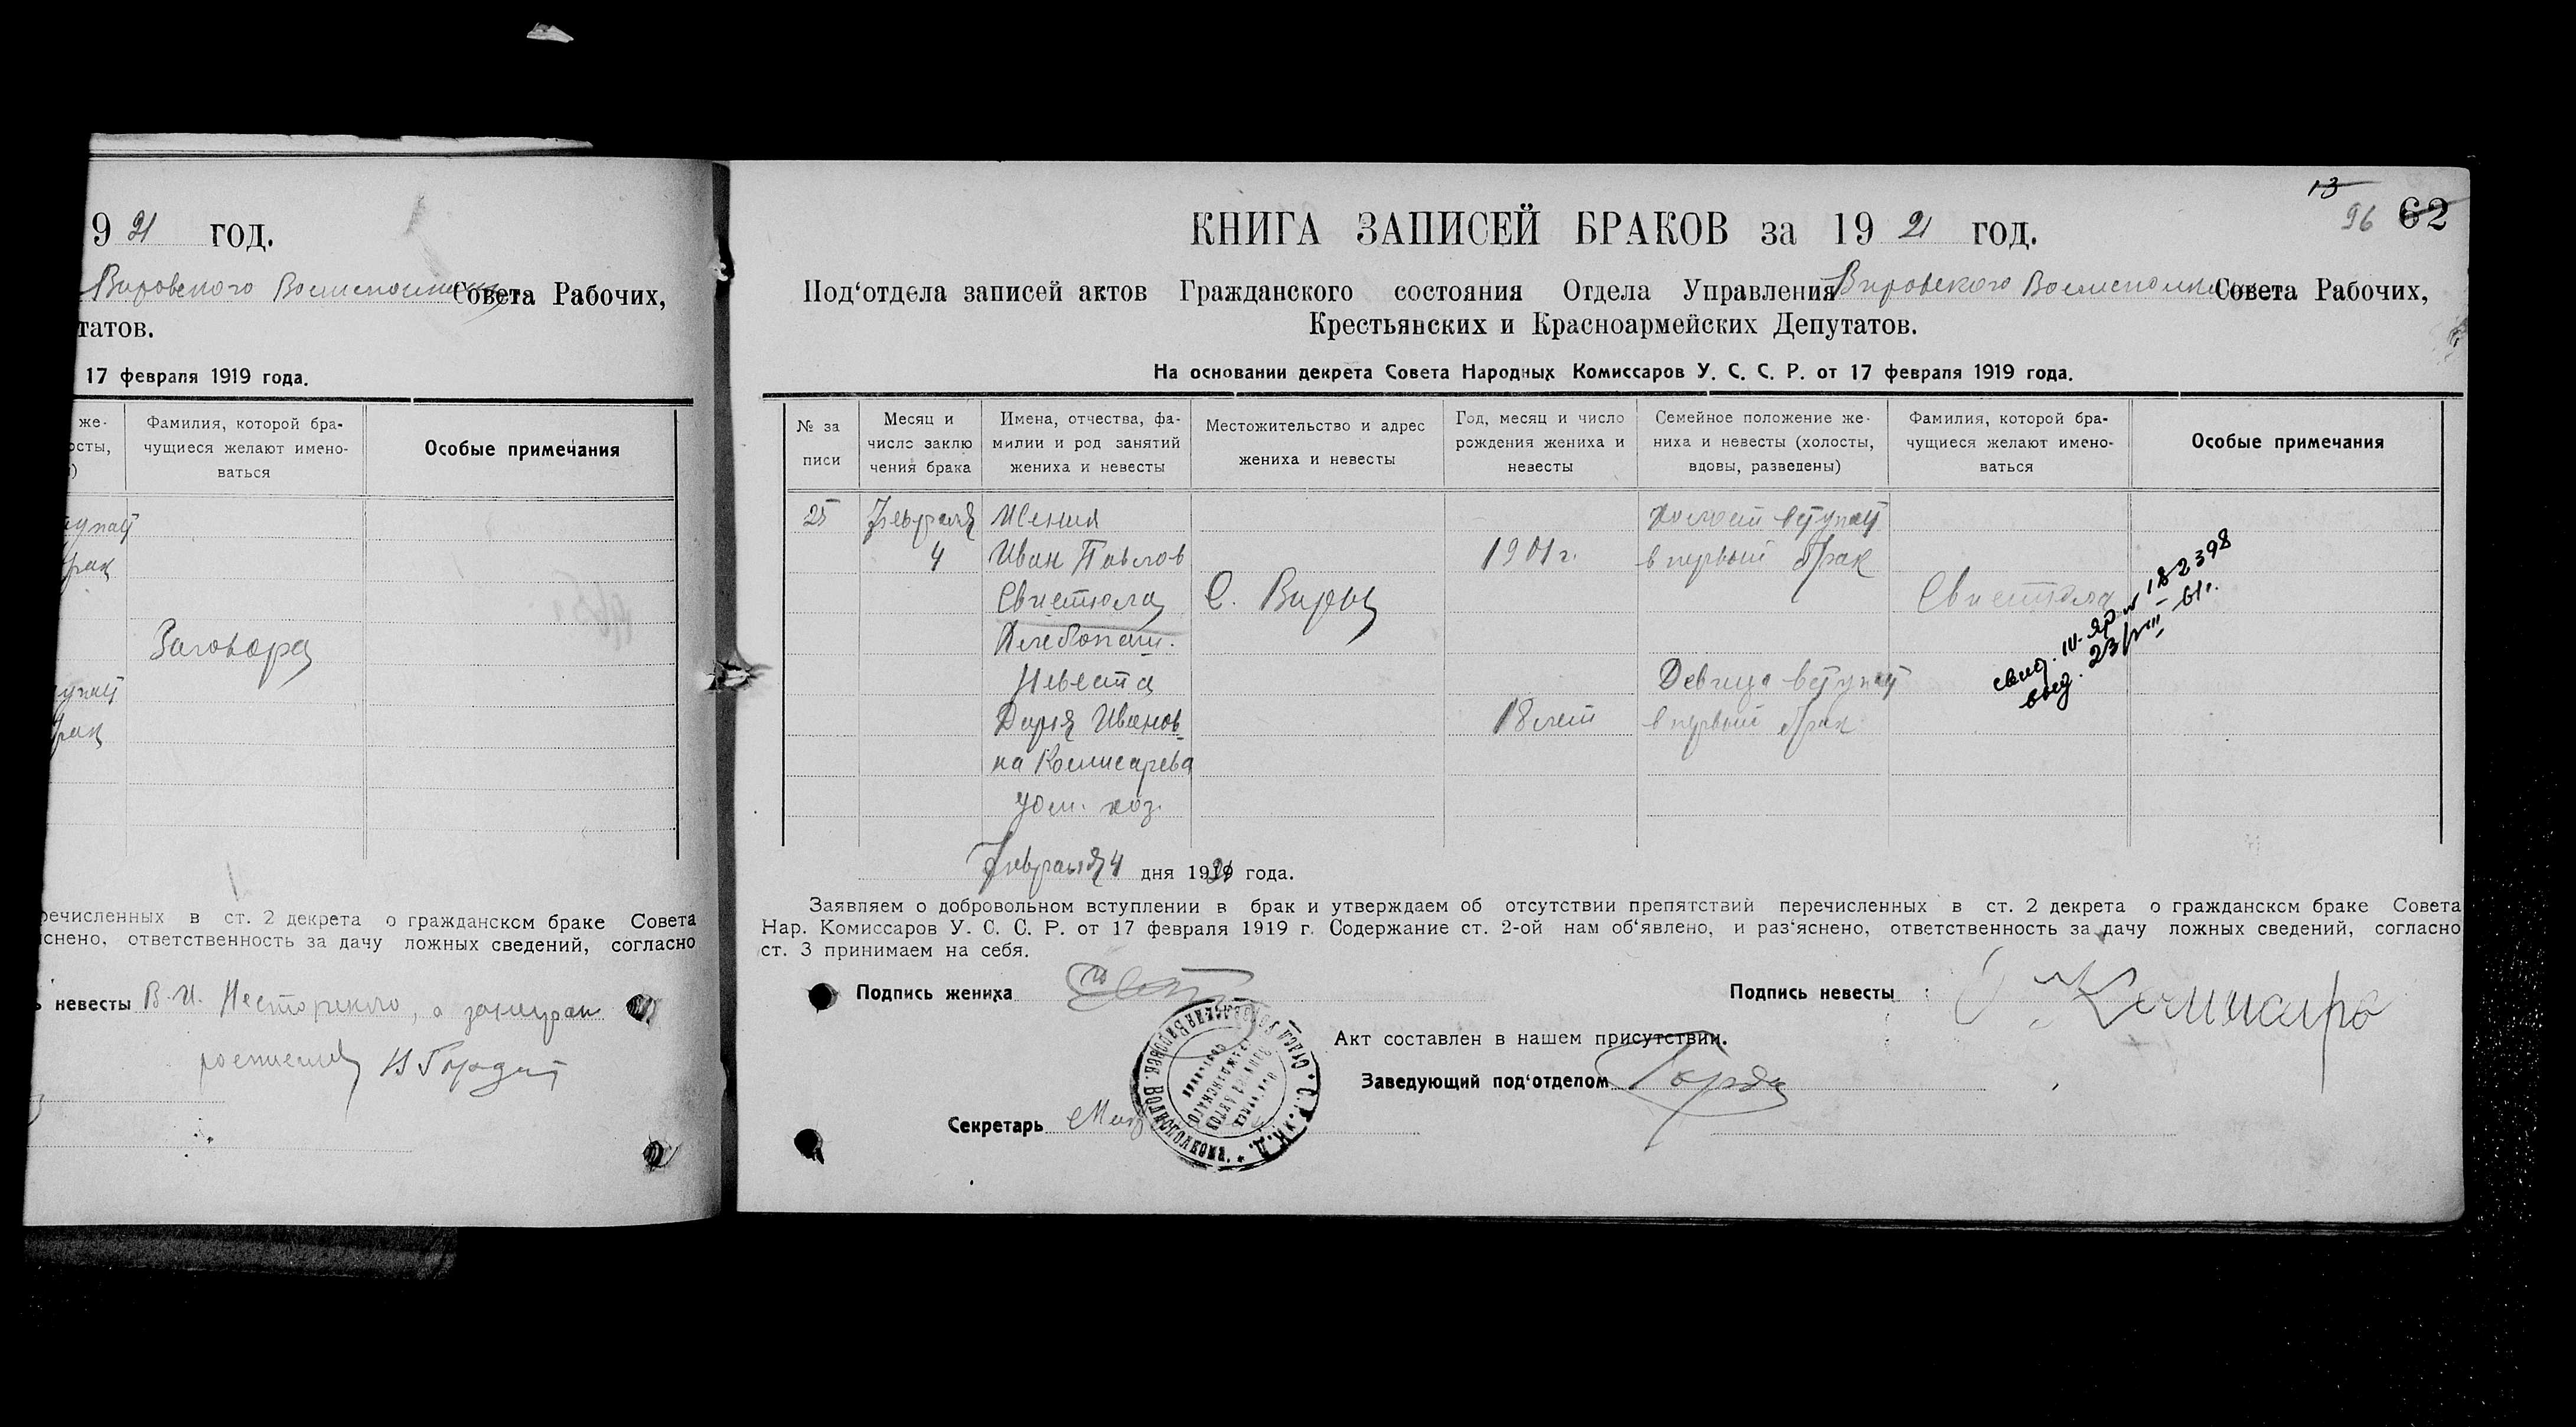 9 21 год.
Вировского Волисполкома Совета Рабочих,
татов.
17 февраля 1919 года.
же-
осты,
)
Фамилия, которой бра-
чущиеся желают имено-
ваться
Особые примечания
Заговора
речисленных в ст. 2 декрета о гражданском браке Совета
снено, ответственность за дачу ложных сведений, согласно
невесты В. И. Несторенко, а за неграм
росписался Н Гордит
13
96 62
КНИГА ЗАПИСЕЙ БРАКОВ за 19 21 год.
Под‘отдела записей актов Гражданского состояния Отдела Управления Вировского Волисполкома Совета Рабочих,
Крестьянских и Красноармейских Депутатов.
На основании декрета Совета Народных Комиссаров У. С. С. Р. от 17 февраля 1919 года.
№ за
писи
Месяц и
число заклю
чения брака
Имена, отчества, фа-
милии и род занятий
жениха и невесты
Местожительство и адрес
жениха и невесты
Год, месяц и число
рождения жениха и
невесты
Семейное положение же-
ниха и невесты (холосты,
вдовы, разведены)
Фамилия, которой бра-
чущиеся желают имено-
ваться
Особые примечания
25
Февраля
4
Жених
Иван Павлов
Свистюла
Хлебопаш.
Невеста
Дария Иванов-
на Комисарева
дом. хоз.
С. Виры
1901 г.
18 лет
Холост вступает
в первый брак
Девица вступает
в первый брак
Свистюла
свид. III-ЯР № 182398
выд. 23/VIII-61 г.
Февраля 4 дня 1921 года.
Заявляем о добровольном вступлении в брак и утверждаем об отсутствии препятствий перечисленных в ст. 2 декрета о гражданском браке Совета
Нар. Комиссаров У. С. С. Р. от 17 февраля 1919 г. Содержание ст. 2-ой нам об‘явлено, и раз‘яснено, ответственность за дачу ложных сведений, согласно
ст. 3 принимаем на себя.
Подпись жениха
Подпись невесты
Акт составлен в нашем присутствии.
Заведующий под‘отделом
Секретарь